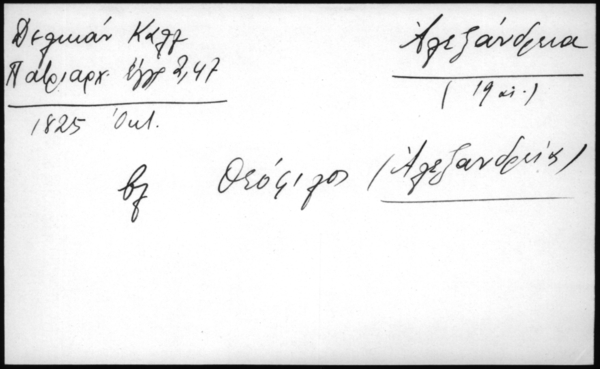 Δελικάν Καλλ
Πατριαρχ. Έγγρ 2,47
1825 Οκτ.
Ἀλεξάνδρεια
(19 αι.)
βλ Θεόφιλος (Ἀλεξανδρείας)